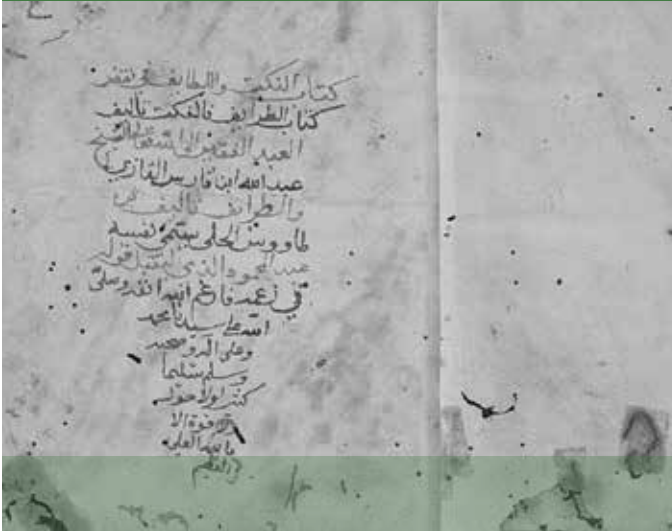 كتاب النكت واللطايف في نقض
كتاب الطرايف فالنكت تاليف
العبد الفقير الى الله تعالى الشيخ
عبد الله ابن فارس التازي
والطرايف تاليف ابن
طاووس الحلي سمى نفسه
عبد المحمود الذمي ليقبل قوله
في زعمه فارغم الله انفه وصلى
الله على سيدنا محمد
وعلى اله وصحبه
وسلم تسليما
كثيرا ولا حول
ولا قوة الا
بالله العلي
العظيم